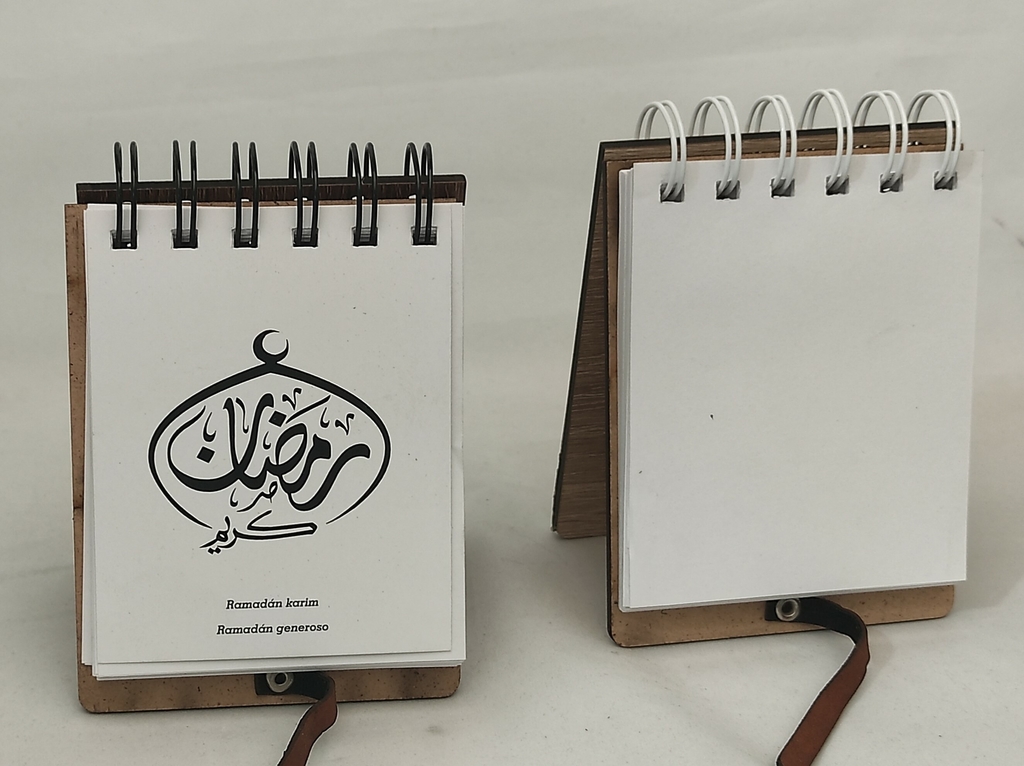 رمضان
كريم
Ramadán karim
Ramadán generoso